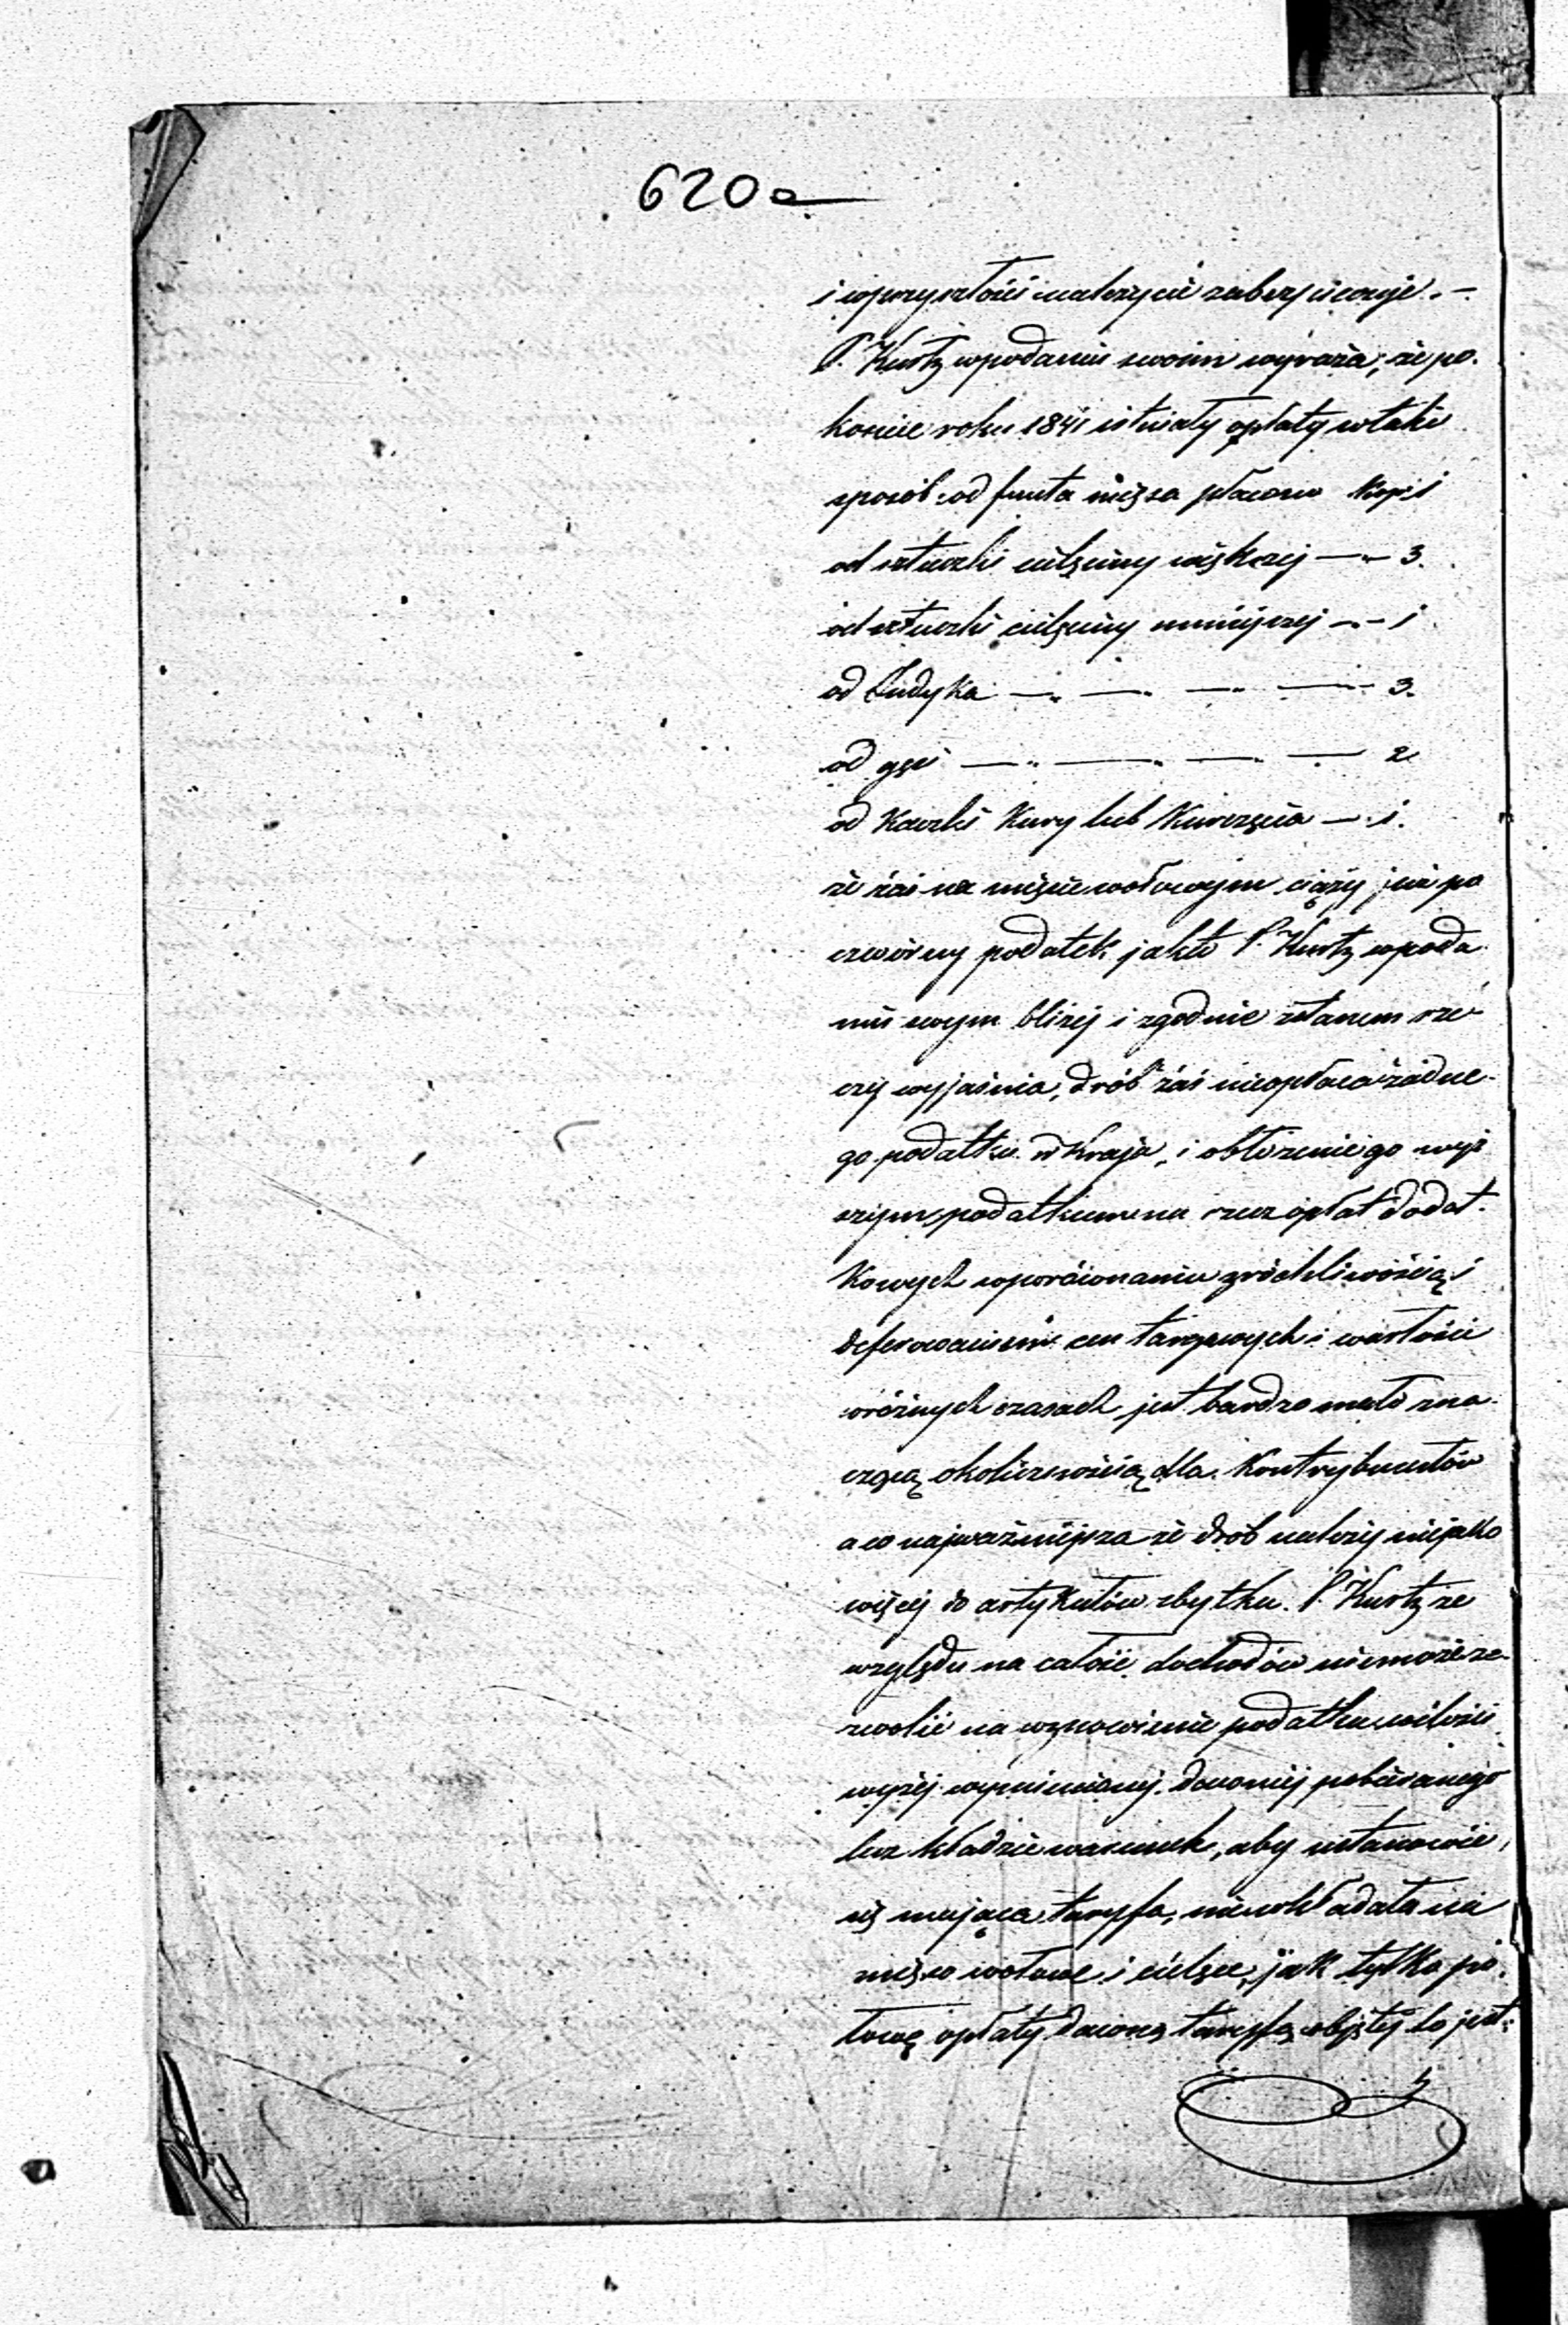 620a
i w przyszłości należycie zabezpieczuje. —
P. Kurtz w podaniu swoim wyraża, że po
koniec roku 1841 istniały opłaty w taki
sposób: od funta mięsa płacono Kop: 1
od sztuczki cielęciny większej — „ — 3.
od sztuczki cielęciny mniejszej — „ — 1
od Indyka — „ — „ — „ — „ 3.
od gęsi — „ — „ — „ — 2
od Kaczki Kury lub Kurczęcia — „ 1.
że zaś na mięsie wołowym ciąży już po
czwórny podatek jak to P. Kurtz w poda
niu swym bliżej i zgodnie z stanem rze
czy wyjaśnia, drób zaś nieopłaca żadne-
go podatku w Kraju, i obłożenie go wyż
szym podatkiem na rzecz opłat dodat-
kowych w porównaniu z
cen targowych i wartości
w różnych czasach jest bardzo mało zna-
czącą okolicznością dla Kontrybuentów
a co najważniejsza że drób należy niejako
więcej do artykułów zbytku. P. Kurtz ze
względu na całość dochodów niemoże ze-
zwolić na wznowienie podatku w ilości
wyżej wymienionej dawniej pobieranego
lecz kładzie warunek, aby ustanowić
się mająca taryfa, niewkładała na
mięso wołowe i cielęce, jak tylko po-
łowę opłaty dawną taryfą objętej to jest: